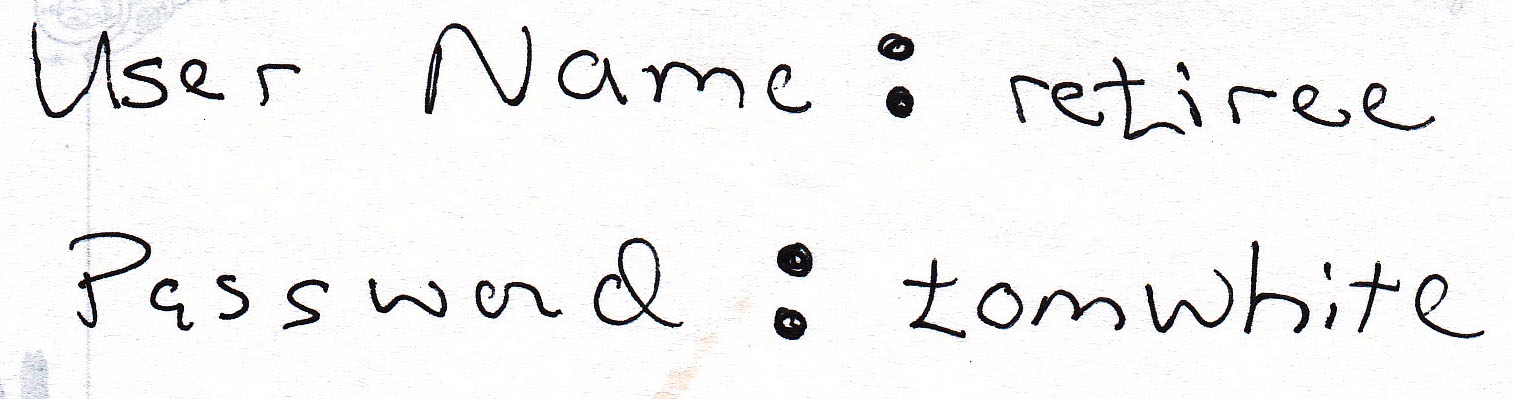 User Name: retiree
Password: tomwhite